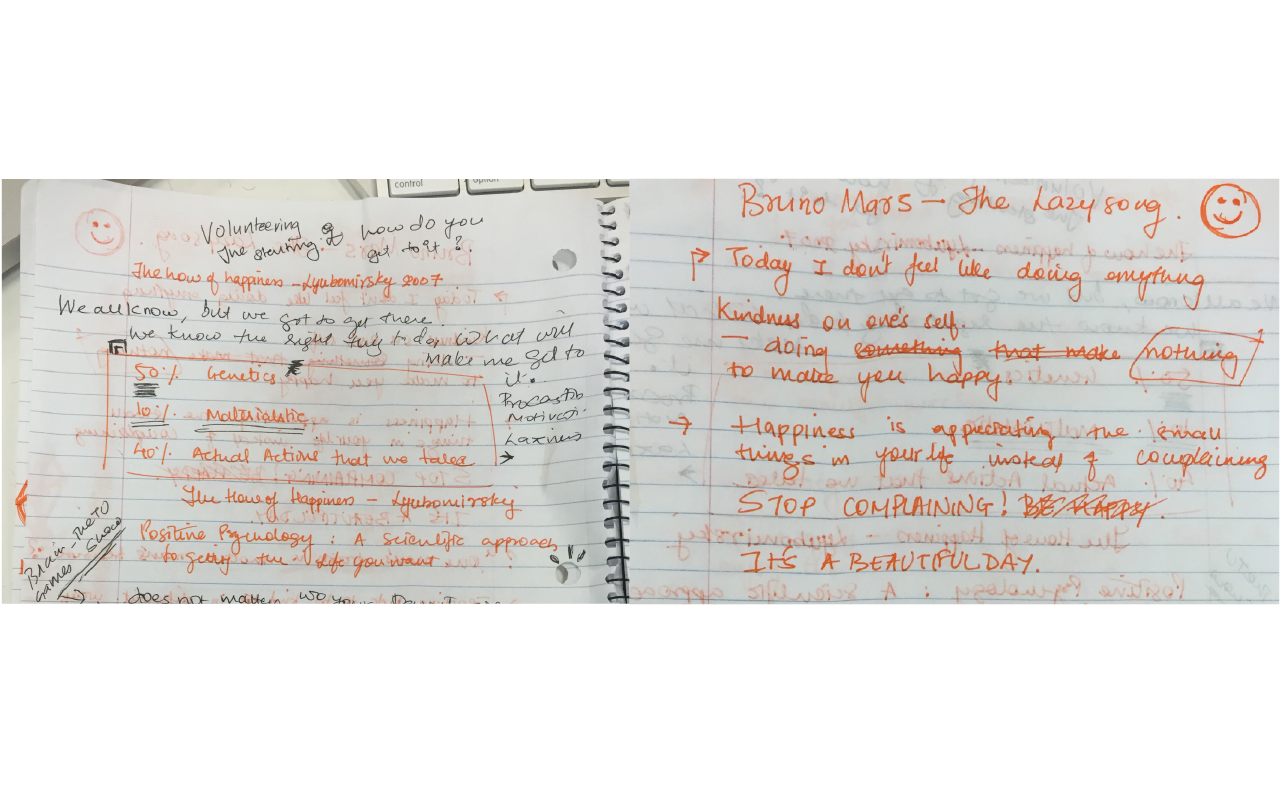 control
option
Volunteering & how do you
The starting of get to it?
The how of happiness - Lyubomirsky 2007
We all know, but we got to get there.
we know the right thing to do, what will
make me get to
it.
50% Genetics
10% Materialistic
40% Actual Actions that we takes
Procastin
Motivati
Laziness
The How of Happiness - Lyubomirsky
Positive Psychology : A scientific approach
to getting the life you want
Brain - The TO
Games Show
does not matter
Bruno Mars - The Lazy song.
Today I don't feel like doing anything
Kindness on one's self.
- doing something that make nothing
to make you happy.
→ Happiness is appeicrating the small
things in your life instead of complaining
STOP COMPLAINING! BE HAPPY.
IT'S A BEAUTIFUL DAY.